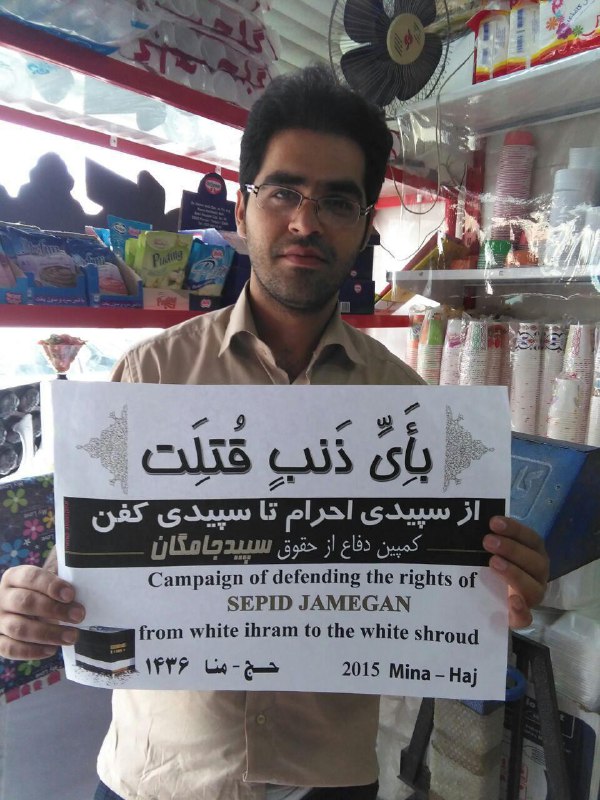 بِأَیِّ ذَنبٍ قُتِلَت
از سپیدی احرام تا سپیدی کفن
کمپین دفاع از حقوق سپیدجامگان
Campaign of defending the rights of
SEPID JAMEGAN
from white ihram to the white shroud
حج - منا ۱۴۳۶
2015 Mina – Haj
Puding